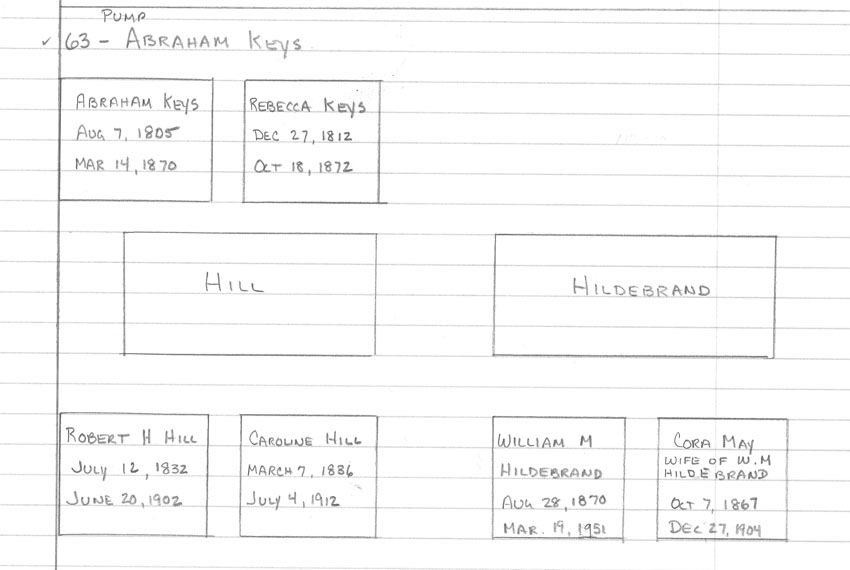 PUMP
✓ 63 - ABRAHAM KEYS
ABRAHAM KEYS
AUG 7, 1805
MAR 14, 1870
REBECCA KEYS
DEC 27, 1812
OCT 18, 1872
HILL
HILDEBRAND
ROBERT H HILL
JULY 12, 1832
JUNE 20, 1902
CAROLINE HILL
MARCH 7, 1836
JULY 4, 1912
WILLIAM M
HILDEBRAND
AUG 28, 1870
MAR. 19, 1951
CORA MAY
WIFE OF W.M
HILDEBRAND
OCT 7, 1867
DEC 27, 1904